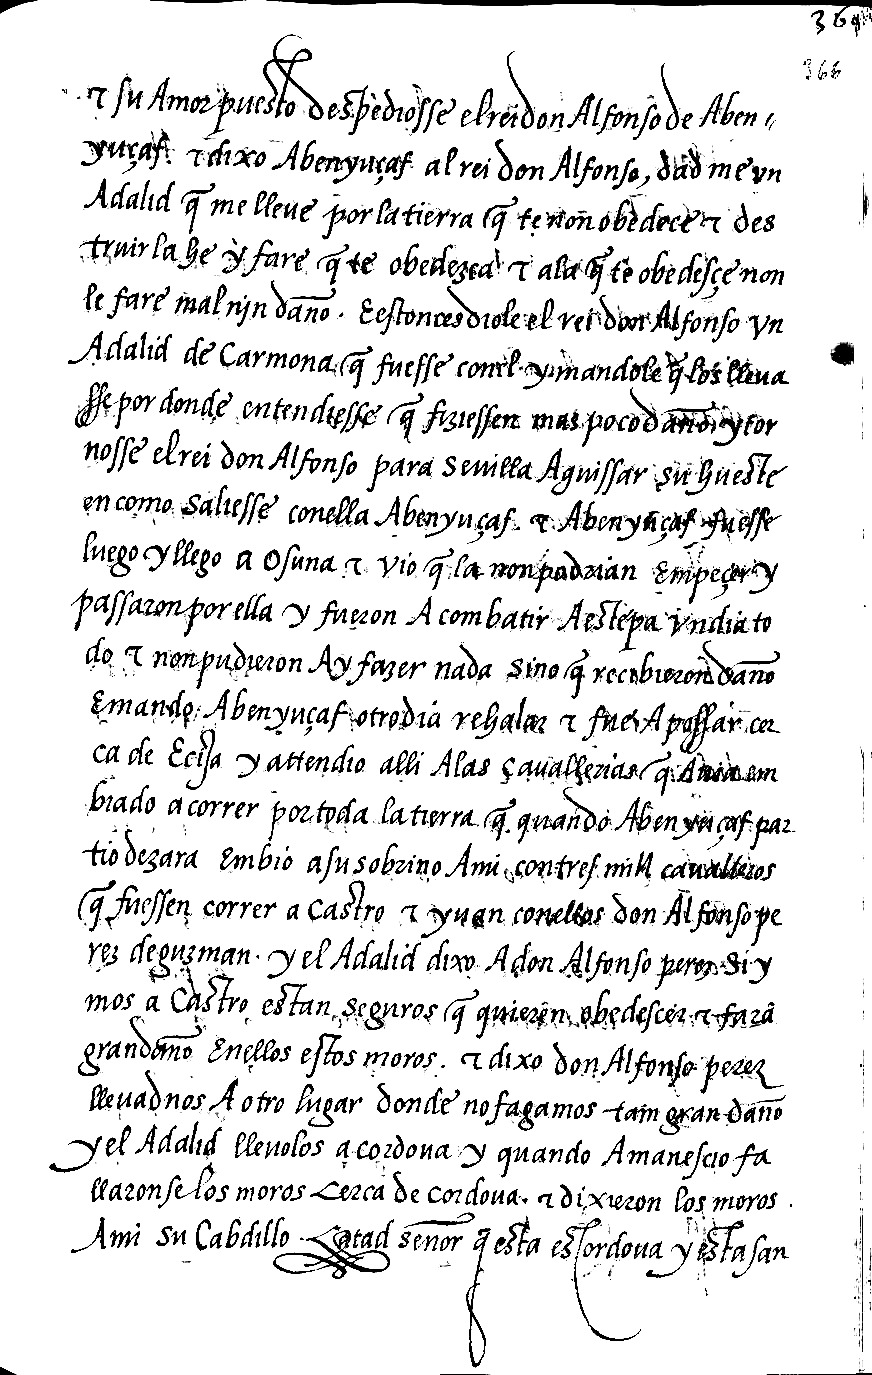 364
366
⁊ su Amor puesto despediosse el rei don Alfonso de Aben
yuçaf. ⁊ dixo Abenyuçaf al rei don Alfonso, dad me vn
Adalid q̃ me lleue por la tierra q̃ te non obedece ⁊ des
truir la he y fare q̃ te obedezca ⁊ ala q̃ te obedesçe non
le fare mal njn daño. E estonces diole el rei don Alfonso vn
Adalid de Carmona q̃ fuesse conel y mandole q̃ los lleua
sse por donde entendiesse q̃ fiziessen mas poco daño, y tor
nosse el rei don Alfonso para Sevilla Aguissar su hueste
en como saliesse conella Abenyuçaf. ⁊ Abenyuçaf fuesse
luego y llego a Osuna ⁊ vio q̃ la non podrian Empeçer y
passaron por ella y fueron A combatir A estepa vn dia to
do ⁊ non pudieron Ay fazer nada sino q̃ recibieron daño
E mando Abenyuçaf otro dia rehalar ⁊ fue A possar cer
ca de Ecija y attendio alli Alas çauallerias q̃ Auia em
biado a correr por toda la tierra q̃ quando Abenyuçaf par
tio dezara Embio a su sobrino Ami con tres mill caualleros
q̃ fuessen correr a Castro ⁊ yuan conellos don Alfonso pe
rez deguzman. y el Adalid dixo A don Alfonso perez si y
mos a Castro estan seguros q̃ quieren obedescer ⁊ farã
gran daño Enellos estos moros. ⁊ dixo don Alfonso perez
lleuadnos A otro lugar donde no fagamos tam gran daño
y el Adalid lleuolos a cordoua y quando Amanescio fa
llaronse los moros cerca de cordoua. ⁊ dixieron los moros
Ami su Cabdillo Catad señor q̃ esta es Cordoua y esta san